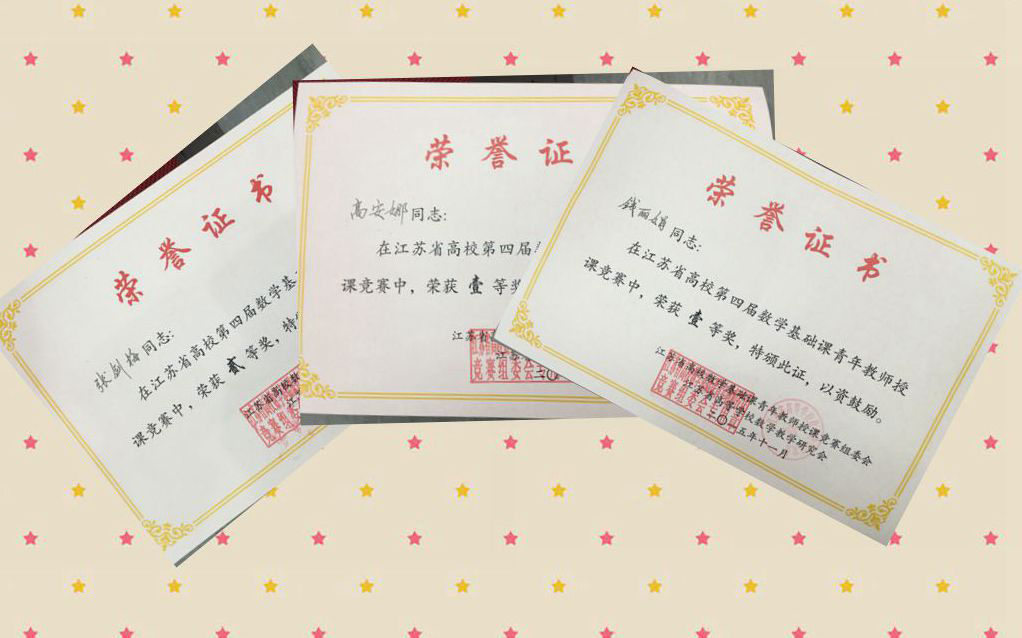 荣誉证书
同志:
在江苏省高校第四届数学基
课竞赛中，荣获 贰 等奖，特
江苏省高校数
荣誉证
高安娜同志:
在江苏省高校第四届
课竞赛中，荣获 壹 等
江苏省
竞赛组委会
二〇
荣誉证书
钱丽娟同志:
在江苏省高校第四届数学基础课青年教师授
课竞赛中，荣获 壹 等奖，特颁此证，以资鼓励。
江苏省高校数学基础课青年教师授课竞赛组委会
江苏省高等学校数学教学研究会
二〇一五年十一月